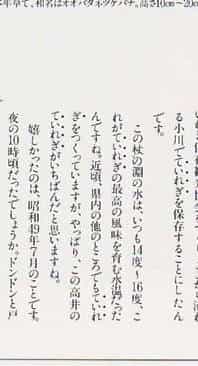 年草で、和名はオオバタネツケバナ。高さ10cm〜20c
る小川でていれぎを保存することにしたん
です。
この杖の淵の水は、いつも14度〜16度、こ
れがていれぎの最高の風味を育む水温だった
んですね。近頃、県内の他のところでもていれ
ぎをつくっていますが、やっぱり、この高井の
ていれぎがいちばんだと思いますね。
嬉しかったのは、昭和49年7月のことです。
夜の10時頃だったでしょうか。ドンドンと戸